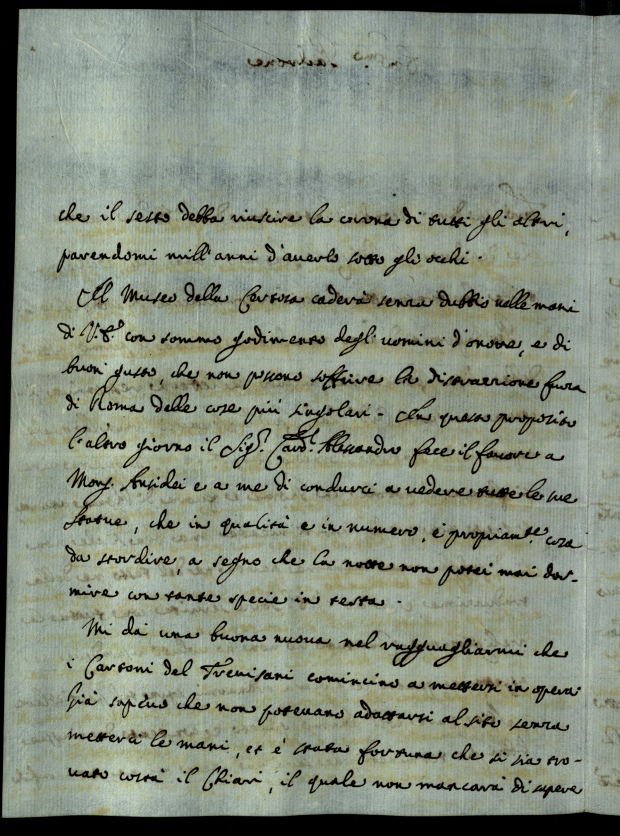 che il sesto debba riuscire la corona di tutti gli altri,
parendomi mill'anni d'averlo sotto gli occhi.
Il Museo della Certosa caderà senza dubbio nelle mani
di V. E. con sommo godimento degl'uomini d'onore, e di
buon gusto, che non possono soffrire la distrazione fuora
di Roma delle cose più singolari. In questo proposito
l'altro giorno il Sig.r Card.l Alessandro fece il favore a
Mons. Ansidei e a me di condurci a vedere tutte le sue
statue, che in qualità e in numero, è propriam.te cosa
da stordire, a segno che la notte non potei mai dor-
mire con tante specie in testa.
Mi dà una buona nuova nel ragguagliarmi che
i Cartoni del Trevisani comincino a mettersi in opera.
Già sapevo che non potevano adattarsi al sito senza
metterci le mani, et è stata fortuna che si sia tro-
vato costà il Chiari, il quale non mancarà di sapere